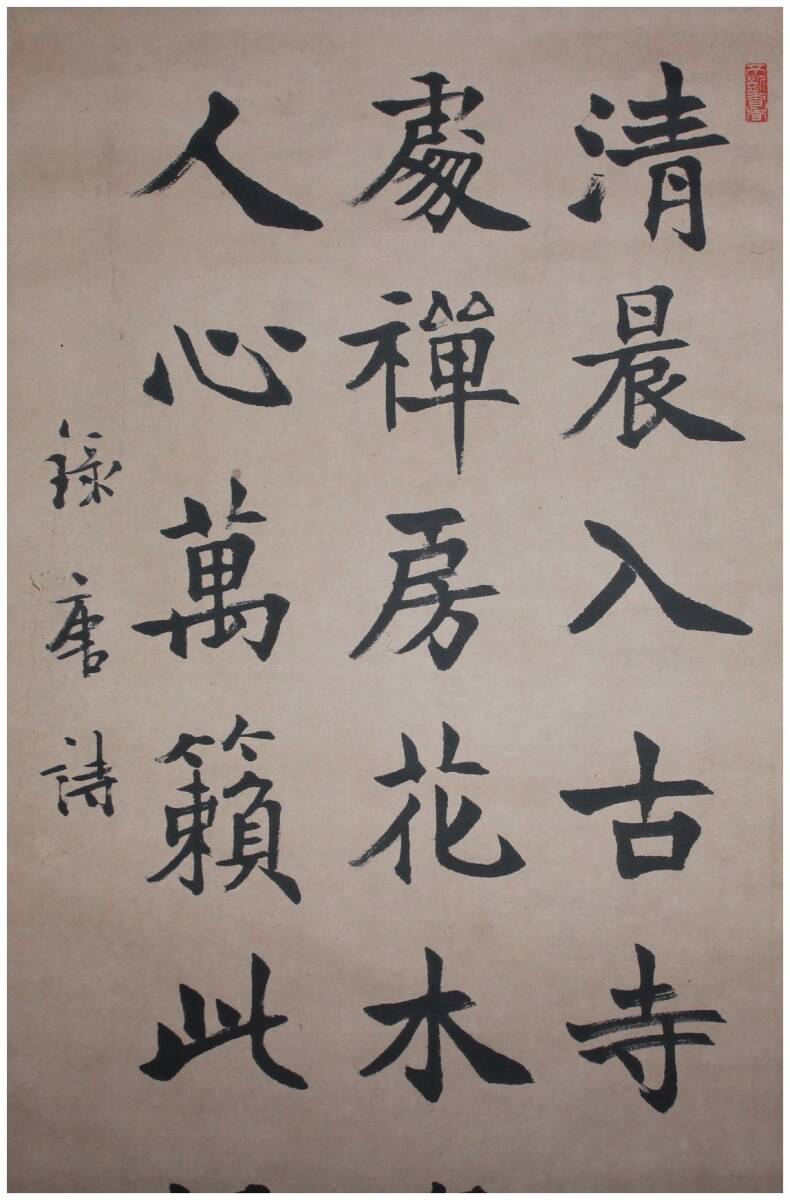 清晨入古寺
處禪房花木
人心萬籟此
錄唐詩